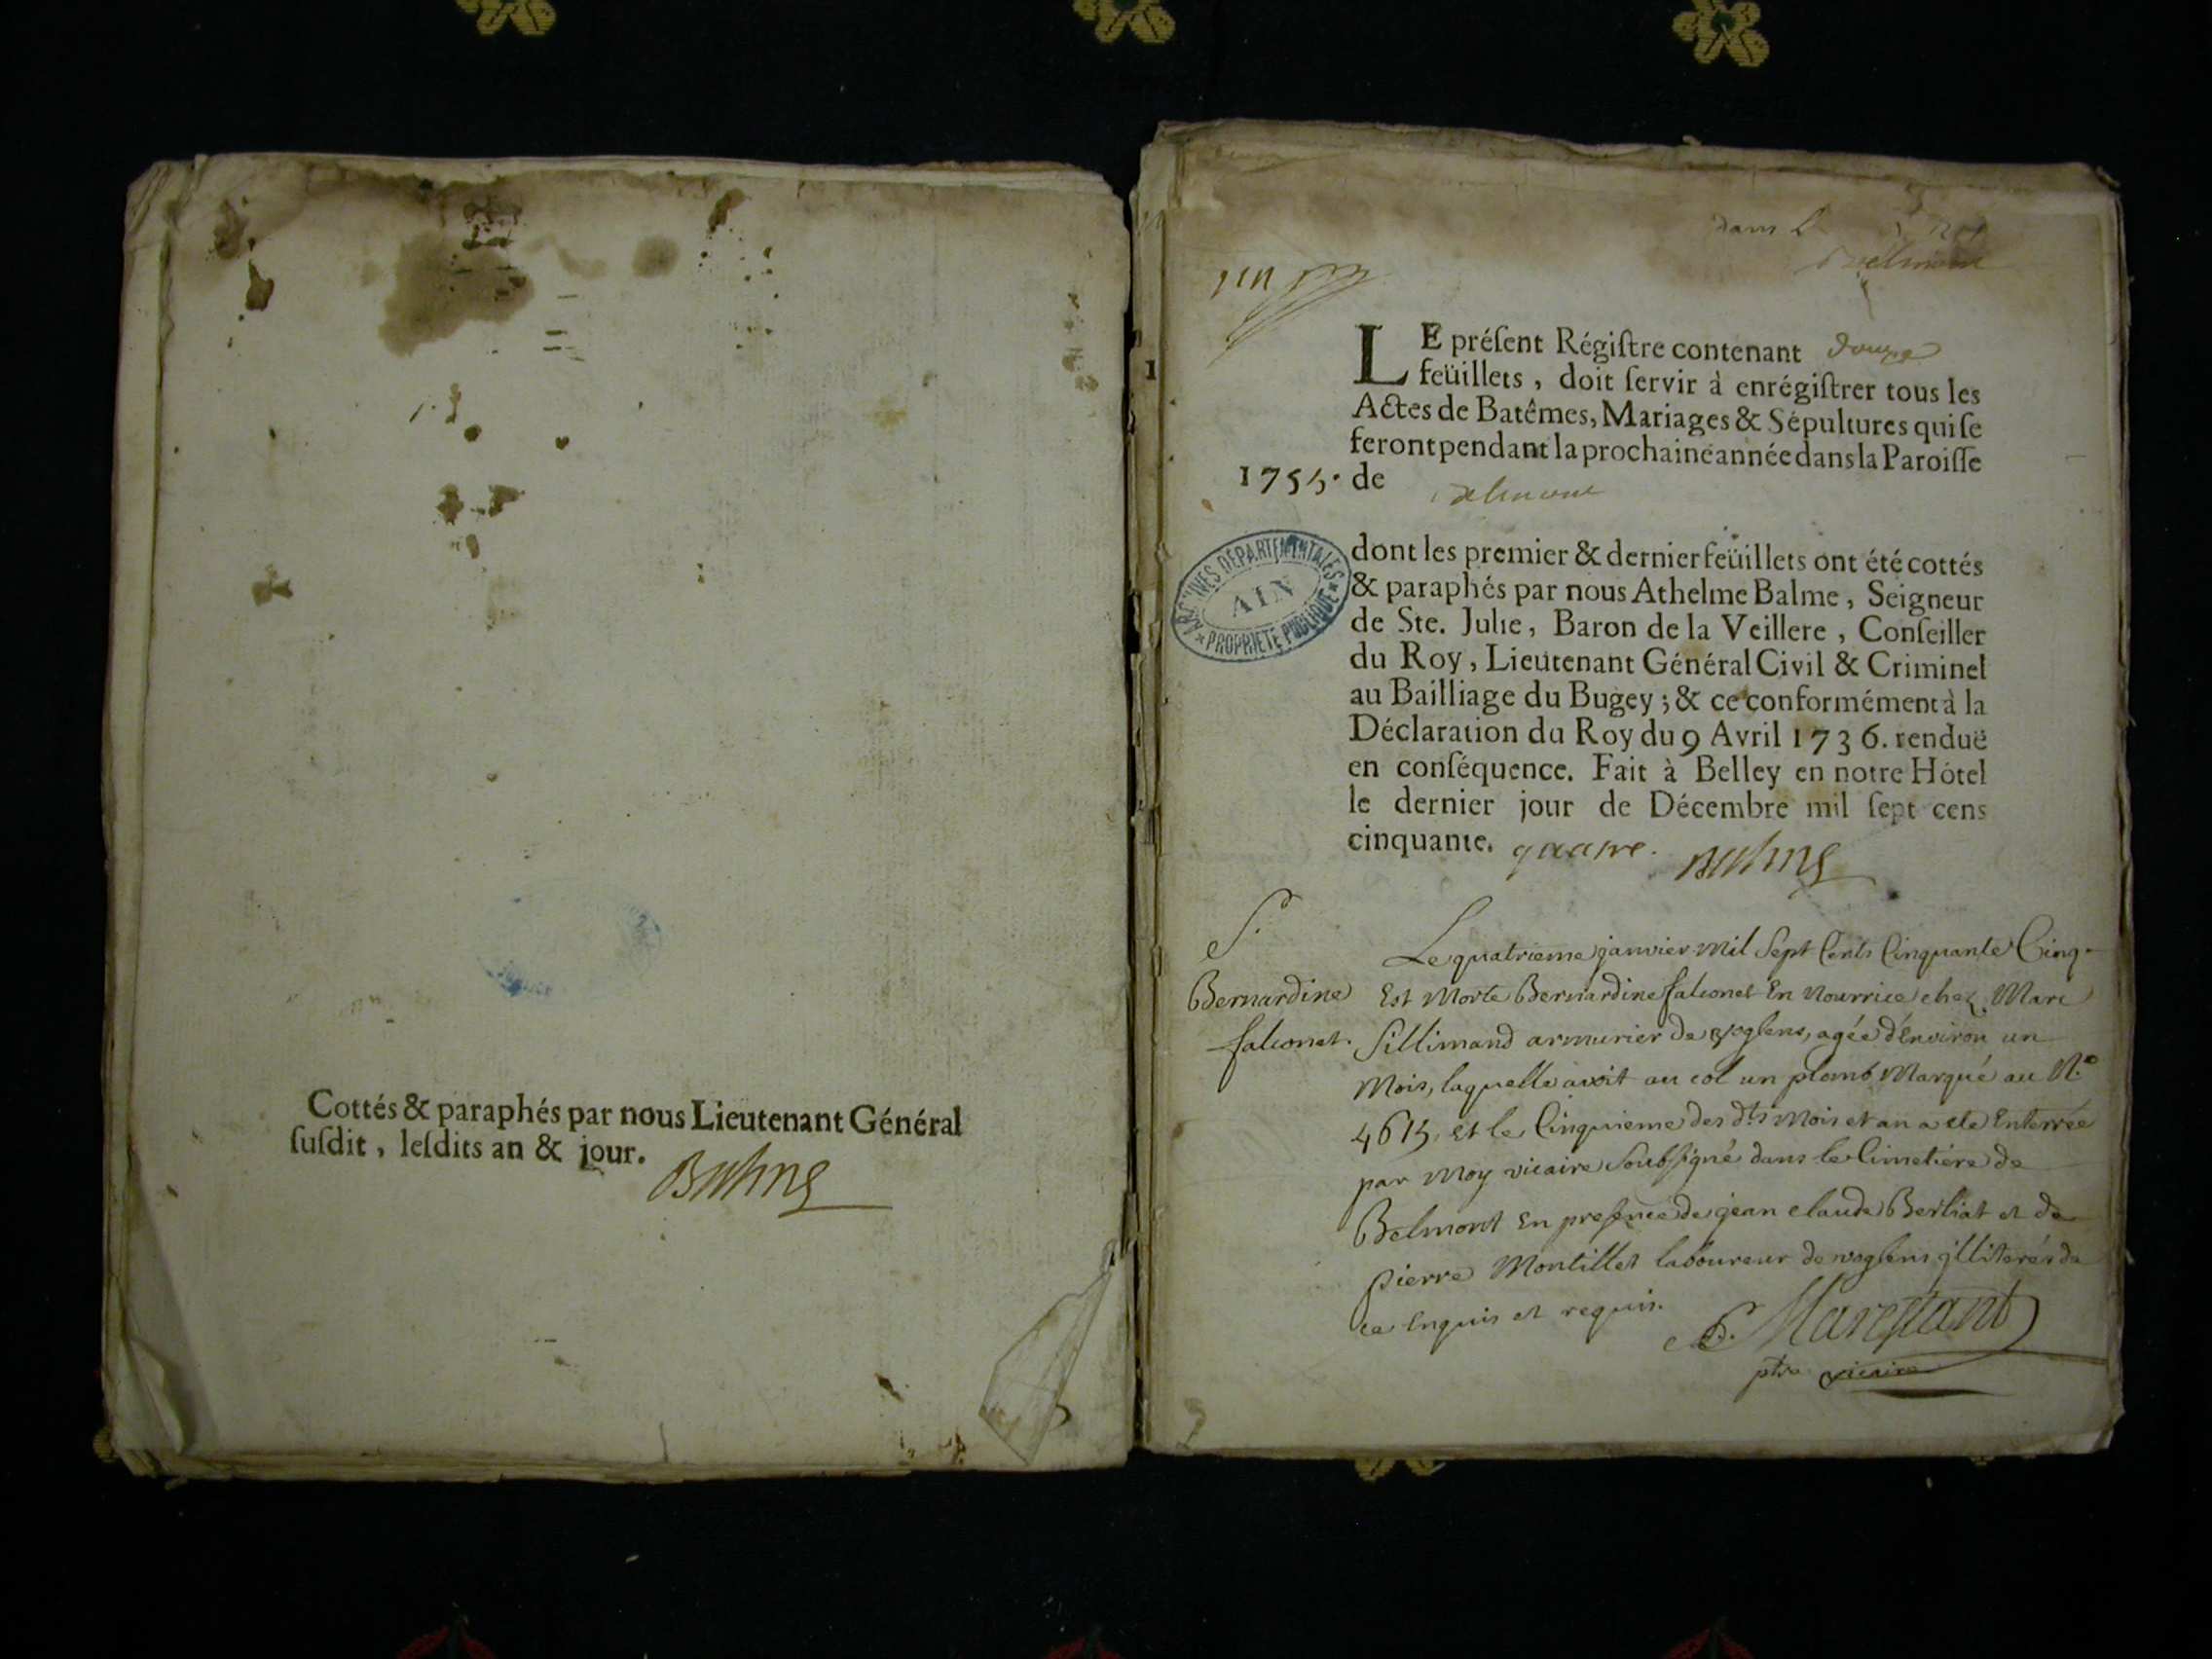 Cottés & paraphés par nous Lieutenant Général
ſuſdit, leſdits an & jour.
Balme
dans
Belmont
LE préſent Régiſtre contenant douze
feüillets, doit ſervir à enrégiſtrer tous les
Actes de Batêmes, Mariages & Sépultures qui ſe
feront pendant la prochaine année dans la Paroiſſe
1755. de Belmont
ARCHIVES DÉPARTEMENTALES
AIN
PROPRIÉTÉ PUBLIQUE
dont les premier & dernier feüillets ont été cottés
& paraphés par nous Athelme Balme, Seigneur
de Ste. Julie, Baron de la Veillere, Conſeiller
du Roy, Lieutenant Général Civil & Criminel
au Bailliage du Bugey; & ce conformément à la
Déclaration du Roy du 9 Avril 1736. renduë
en conſéquence. Fait à Belley en notre Hôtel
le dernier jour de Décembre mil ſept cens
cinquante. quatre. Balme
S.
Bernardine
falconet.
Le quatrieme janvier mil Sept Cents Cinquante Cinq.
Est Morte Bernardine falconet En Nourrice chez Marc
Sillimand armurier de voglens, agée d'Environ un
Mois, laquelle avoit au col un plomb Marqué au N.o
4615, et le Cinquieme des dts Mois et an a ete Enterrée
par Moy vicaire Soubsigné dans le Cimetiere de
Belmont En presence de jean claude Berliat et de
pierre Montillet laboureur de voglens jlliterés de
ce Enquis et requis.
Marestant
ptre vicaire